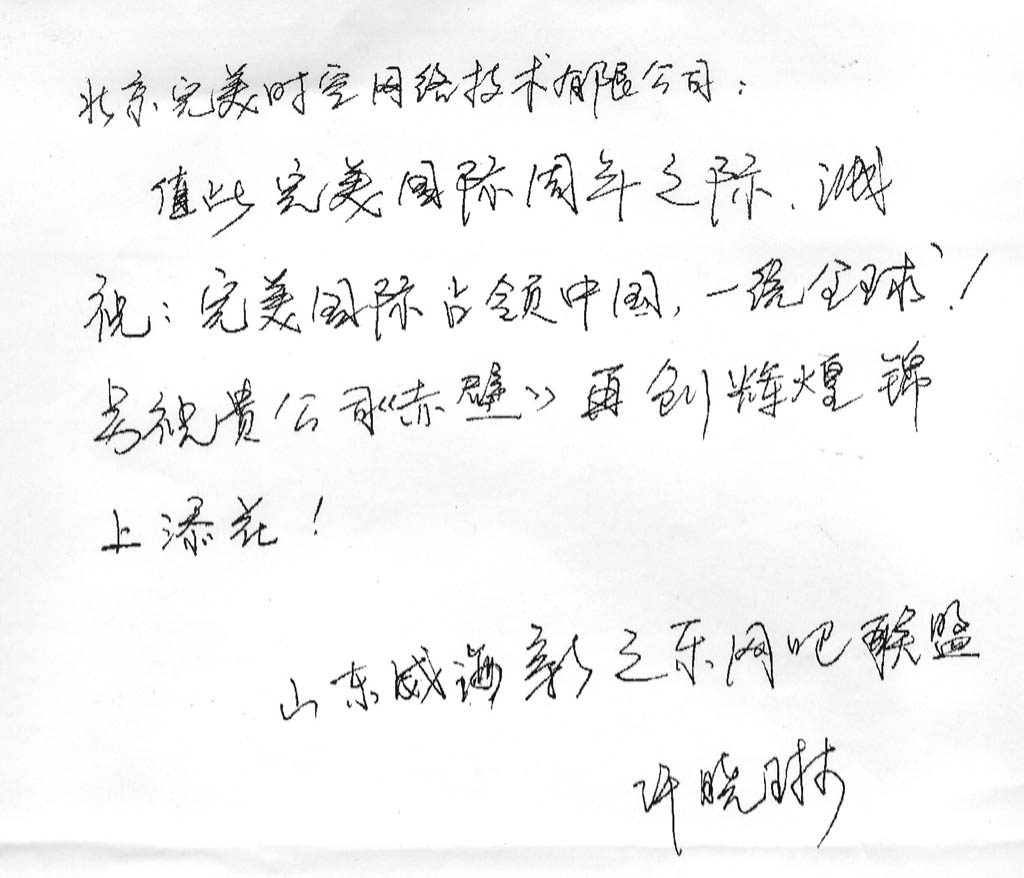 北京完美时空网络技术有限公司：
值此完美国际周年之际、诚
祝：完美国际占领中国，一统全球！
另祝贵公司《赤壁》再创辉煌锦
上添花！
山东威海新之东网吧联盟
许晓琳